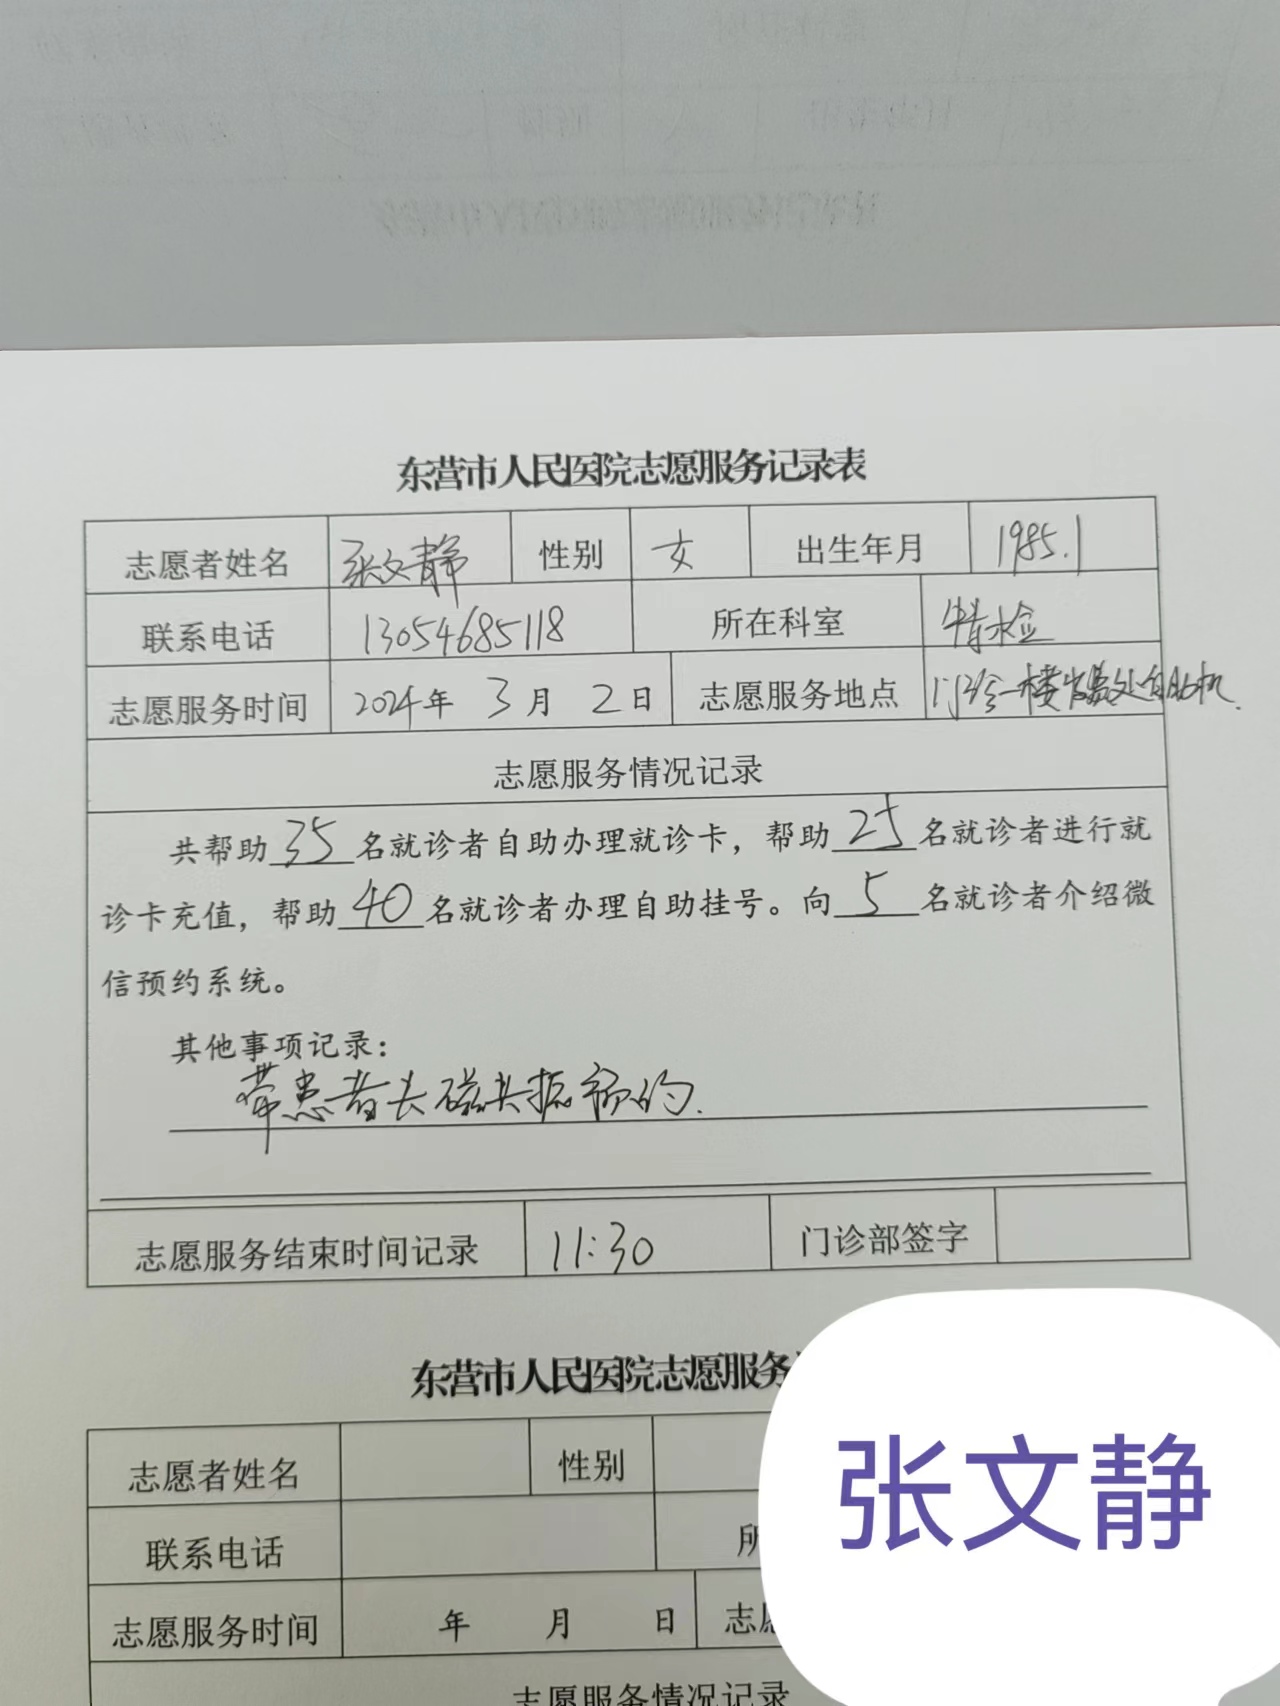 东营市人民医院志愿服务记录表
志愿者姓名 张文静 性别 女 出生年月 1985.1
联系电话 13054685118 所在科室 特检
志愿服务时间 2024年 3月 2日 志愿服务地点 门诊一楼发票处自助机.
志愿服务情况记录
共帮助35名就诊者自助办理就诊卡，帮助25名就诊者进行就
诊卡充值，帮助40名就诊者办理自助挂号。向5名就诊者介绍微
信预约系统。
其他事项记录：
带患者去磁共振预约.
志愿服务结束时间记录 11:30 门诊部签字
东营市人民医院志愿服务
志愿者姓名 性别
联系电话 所
志愿服务时间 年 月 日 志愿
志愿服务情况记录
张文静